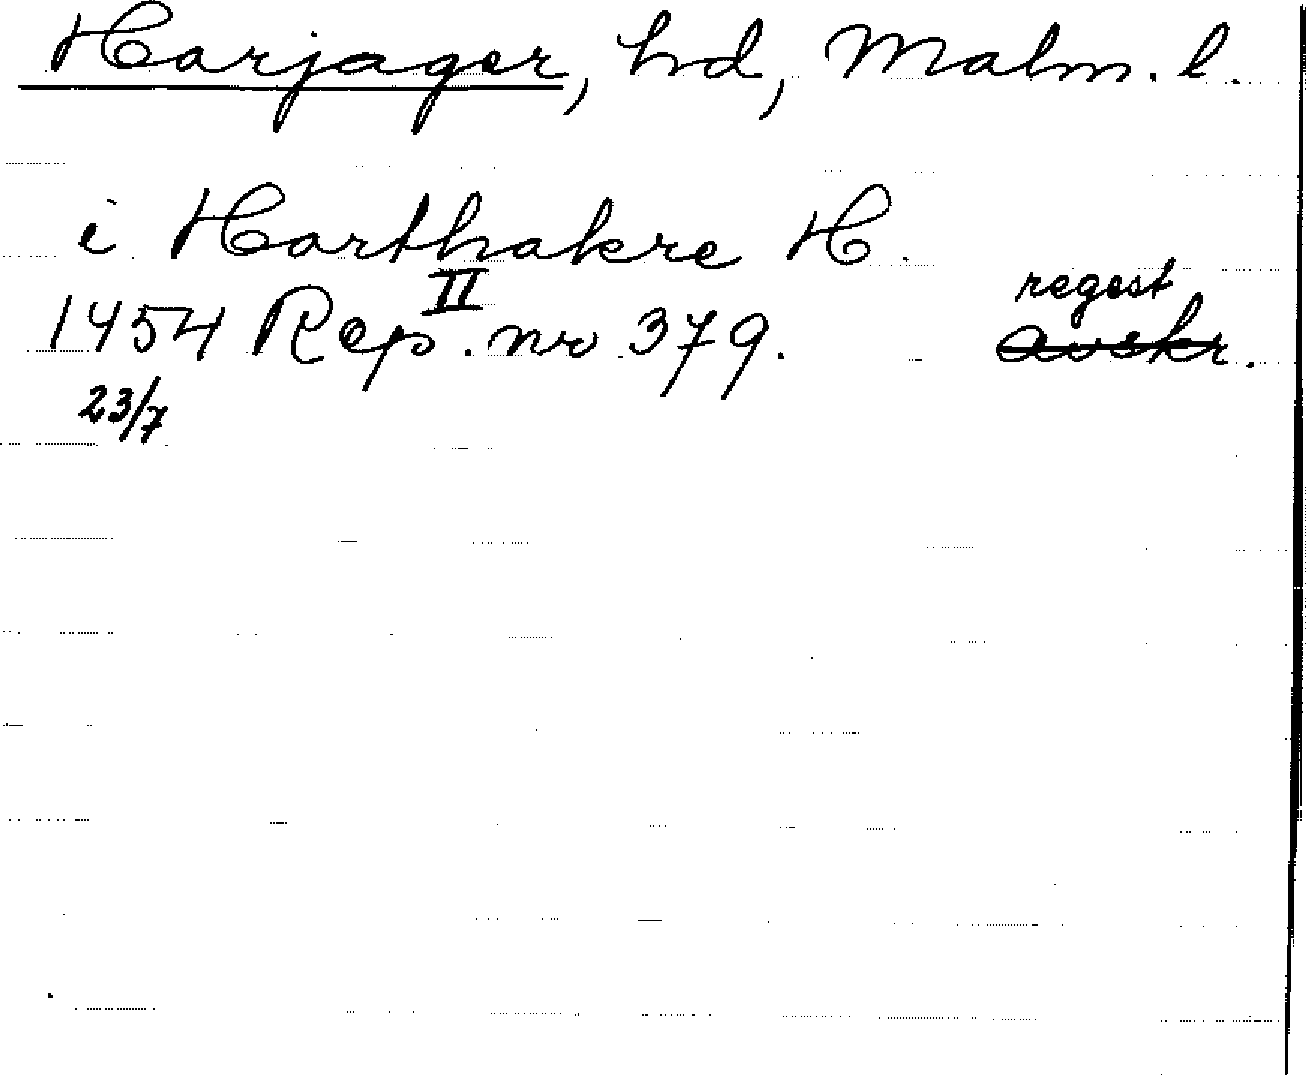 Harjager, hd, Malm. l.
i Harthakre H.
1454 Rep. II nr 379. regest
avskr.
23/7